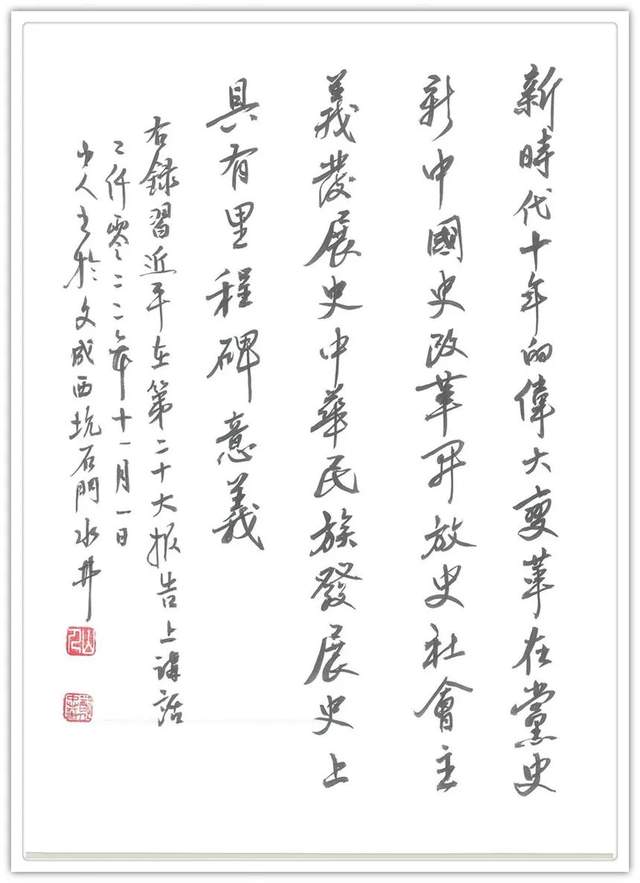 新時代十年的偉大變革在黨史
新中國史改革開放史社會主
義發展史中華民族發展史上
具有里程碑意義
右録習近平在第二十大报告上講話
二仟零二二年十一月一日
山人书於文成西坑石門水井
山人